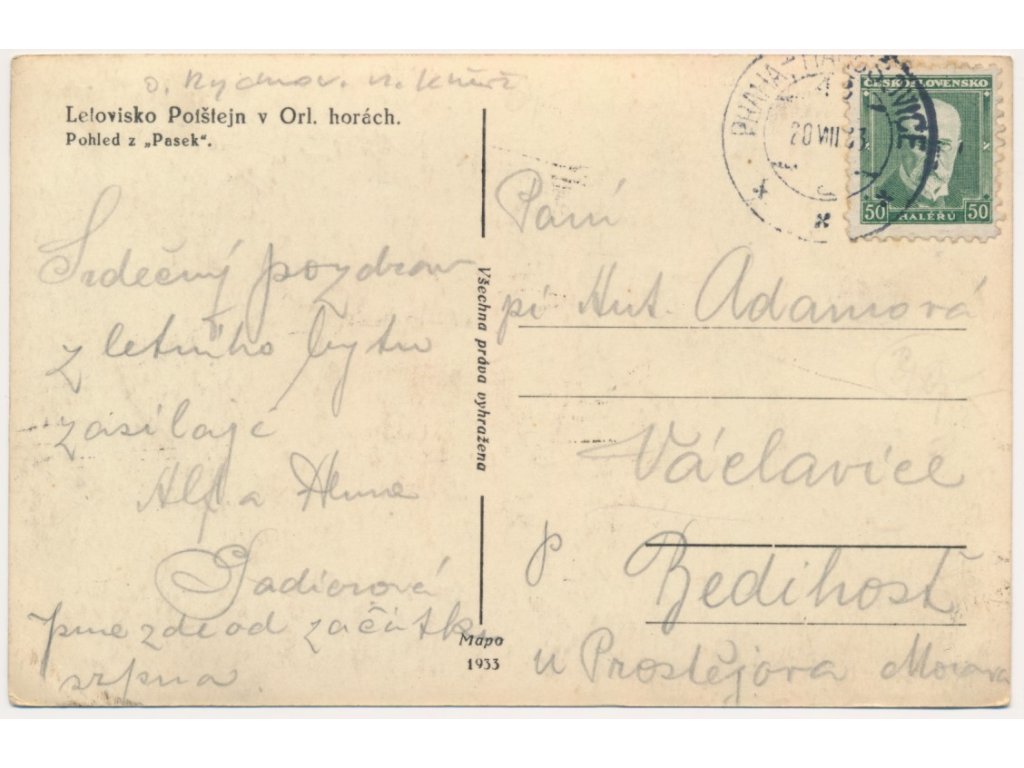 o. Rychnov. n. Kněž
Letovisko Potštejn v Orl. horách.
Pohled z „Pasek“.
Srdečný pozdrav
z letního bytu
zasílají
Alf a
jsme zde od začátku
srpna
Všechna práva vyhražena
Mapo
1933
PRAHA
20 VIII 33
ČESKOSLOVENSKO
50 HALÉŘŮ 50
Paní
pí Ant. Adamová
Václavice
p Bedihošť
u Prostějova Morava